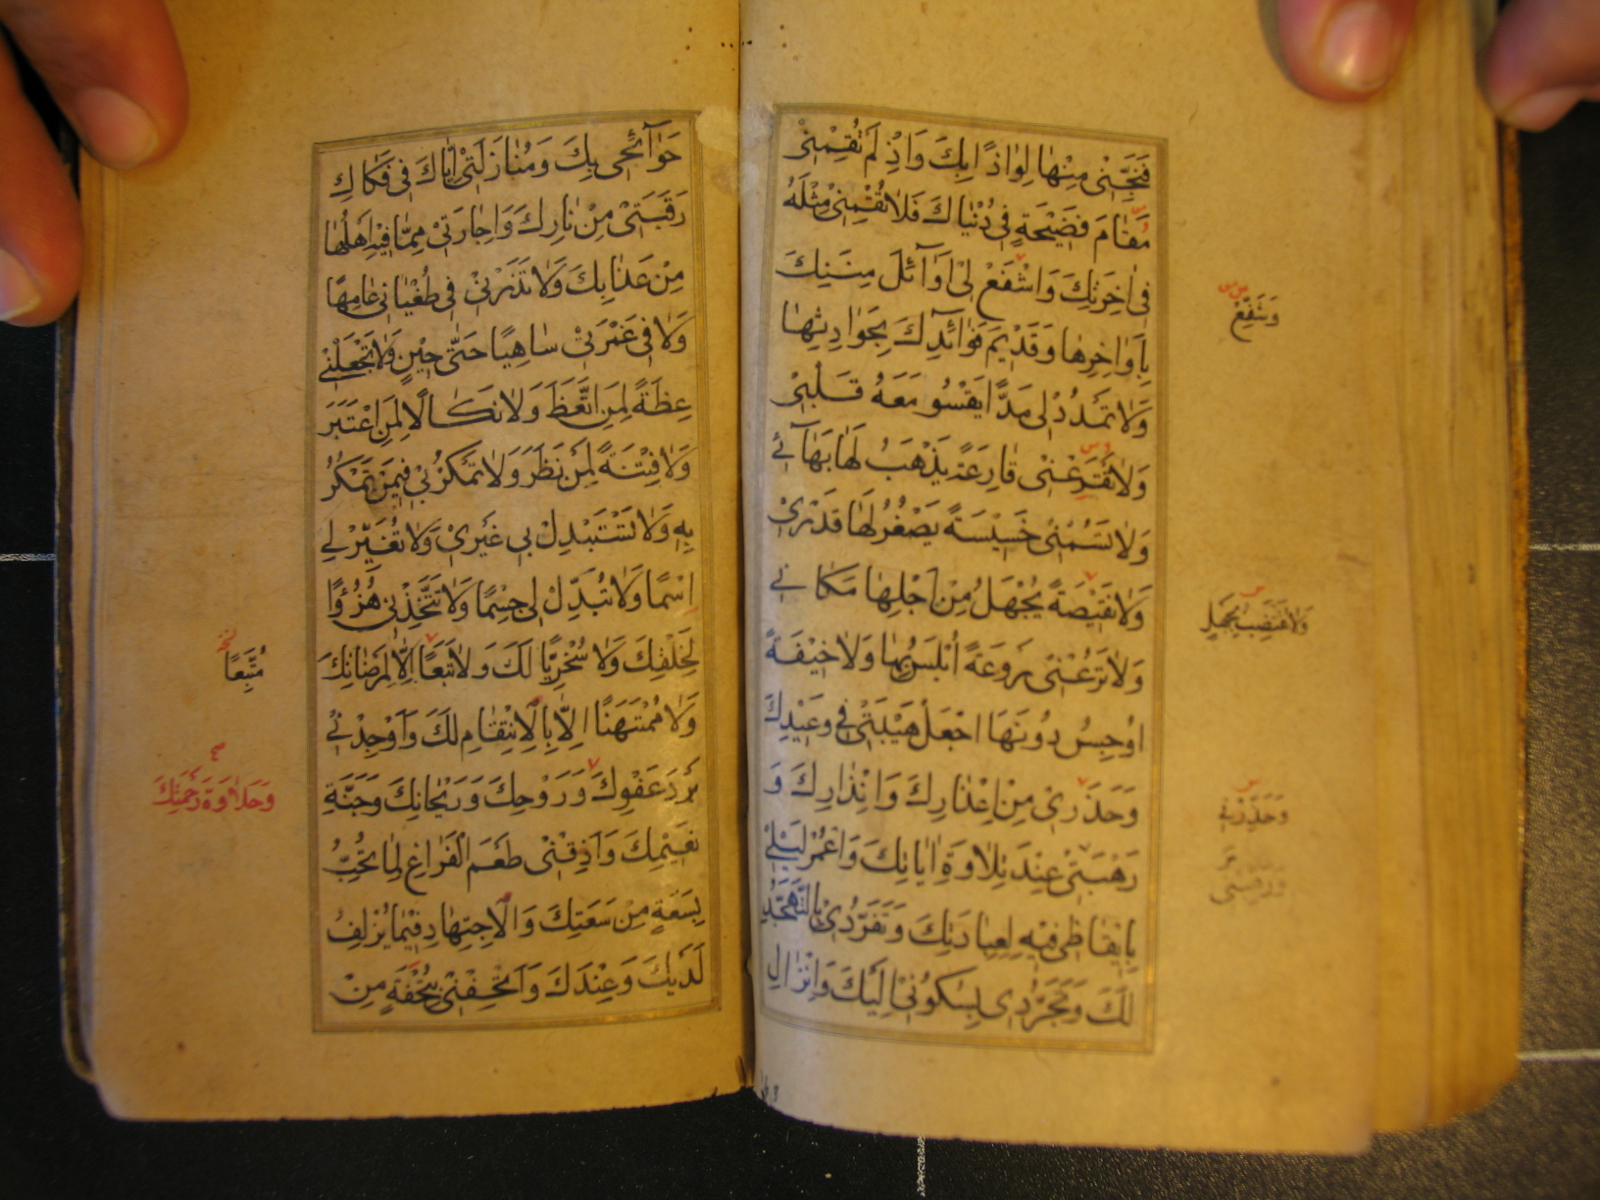 فَنَجِّنِي مِنْهَا لِوَاذًا بِكَ وَاِذْ لَمْ تُقِمْنِي
مَقَامَ فَضِيحَةٍ فِي دُنْيَاكَ فَلَا تُقِمْنِي مِثْلَهُ
فِي اٰخِرَتِكَ وَاشْفَعْ لِي اَوَآئِلَ مِنَنِكَ
بِاَوَاخِرِهَا وَقَدِيمَ فَوَآئِدِكَ بِحَوَادِثِهَا
وَلَا تَمْدُدْ لِي مَدًّا يَقْسُو مَعَهُ قَلْبِي
وَلَا تَقْرَعْنِي قَارِعَةً يَذْهَبُ لَهَا بَهَآئِي
وَلَا تَسُمْنِي خَسِيسَةً يَصْغُرُ لَهَا قَدْرِي
وَلَا نَقِيصَةً يُجْهَلُ مِنْ اَجْلِهَا مَكَانِي
وَلَا تَرُعْنِي رَوْعَةً اُبْلِسُ بِهَا وَلَا خِيفَةً
اُوجِسُ دُونَهَا اجْعَلْ هَيْبَتِي فِي وَعِيدِكَ
وَحَذَرِي مِنْ اِعْذَارِكَ وَاِنْذَارِكَ وَ
رَهْبَتِي عِنْدَ تِلَاوَةِ اٰيَاتِكَ وَاعْمُرْ لَيْلِي
بِاِيقَاظِي فِيهِ لِعِبَادَتِكَ وَتَفَرُّدِي بِالتَّهَجُّدِ
لَكَ وَتَجَرُّدِي بِسُكُونِي اِلَيْكَ وَاِنْزَالِ
وَشَفِّعْ
وَحَذَرِي
حَوَآئِجِي بِكَ وَمُنَازَلَتِي اِيَّاكَ فِي فَكَاكِ
رَقَبَتِي مِنْ نَارِكَ وَاِجَارَتِي مِمَّا فِيهِ اَهْلُهَا
مِنْ عَذَابِكَ وَلَا تَذَرْنِي فِي طُغْيَانِي عَامِهًا
وَلَا فِي غَمْرَتِي سَاهِيًا حَتّٰى حِينٍ وَلَا تَجْعَلْنِي
عِظَةً لِمَنِ اتَّعَظَ وَلَا نَكَالًا لِمَنِ اعْتَبَرَ
وَلَا فِتْنَةً لِمَنْ نَظَرَ وَلَا تَمْكُرْ بِي فِيمَنْ تَمْكُرُ
بِهِ وَلَا تَسْتَبْدِلْ بِي غَيْرِي وَلَا تُغَيِّرْ لِي
اسْمًا وَلَا تُبَدِّلْ لِي جِسْمًا وَلَا تَتَّخِذْنِي هُزُؤًا
لِخَلْقِكَ وَلَا سُخْرِيًّا لَكَ وَلَا تَبَعًا اِلَّا لِمَرْضَاتِكَ
وَلَا مُمْتَهَنًا اِلَّا بِالْاِنْتِقَامِ لَكَ وَاَوْجِدْنِي
بَرْدَ عَفْوِكَ وَرَوْحِكَ وَرَيْحَانِكَ وَجَنَّةِ
نَعِيمِكَ وَاَذِقْنِي طَعْمَ الْفَرَاغِ لِمَا تُحِبُّ
بِسَعَةٍ مِنْ سَعَتِكَ وَالْاِجْتِهَادِ فِيمَا يُزْلِفُ
لَدَيْكَ وَعِنْدَكَ وَاَتْحِفْنِي بِتُحْفَةٍ مِنْ
مُتَّبِعًا
وَحَلَاوَةَ رَحْمَتِكَ